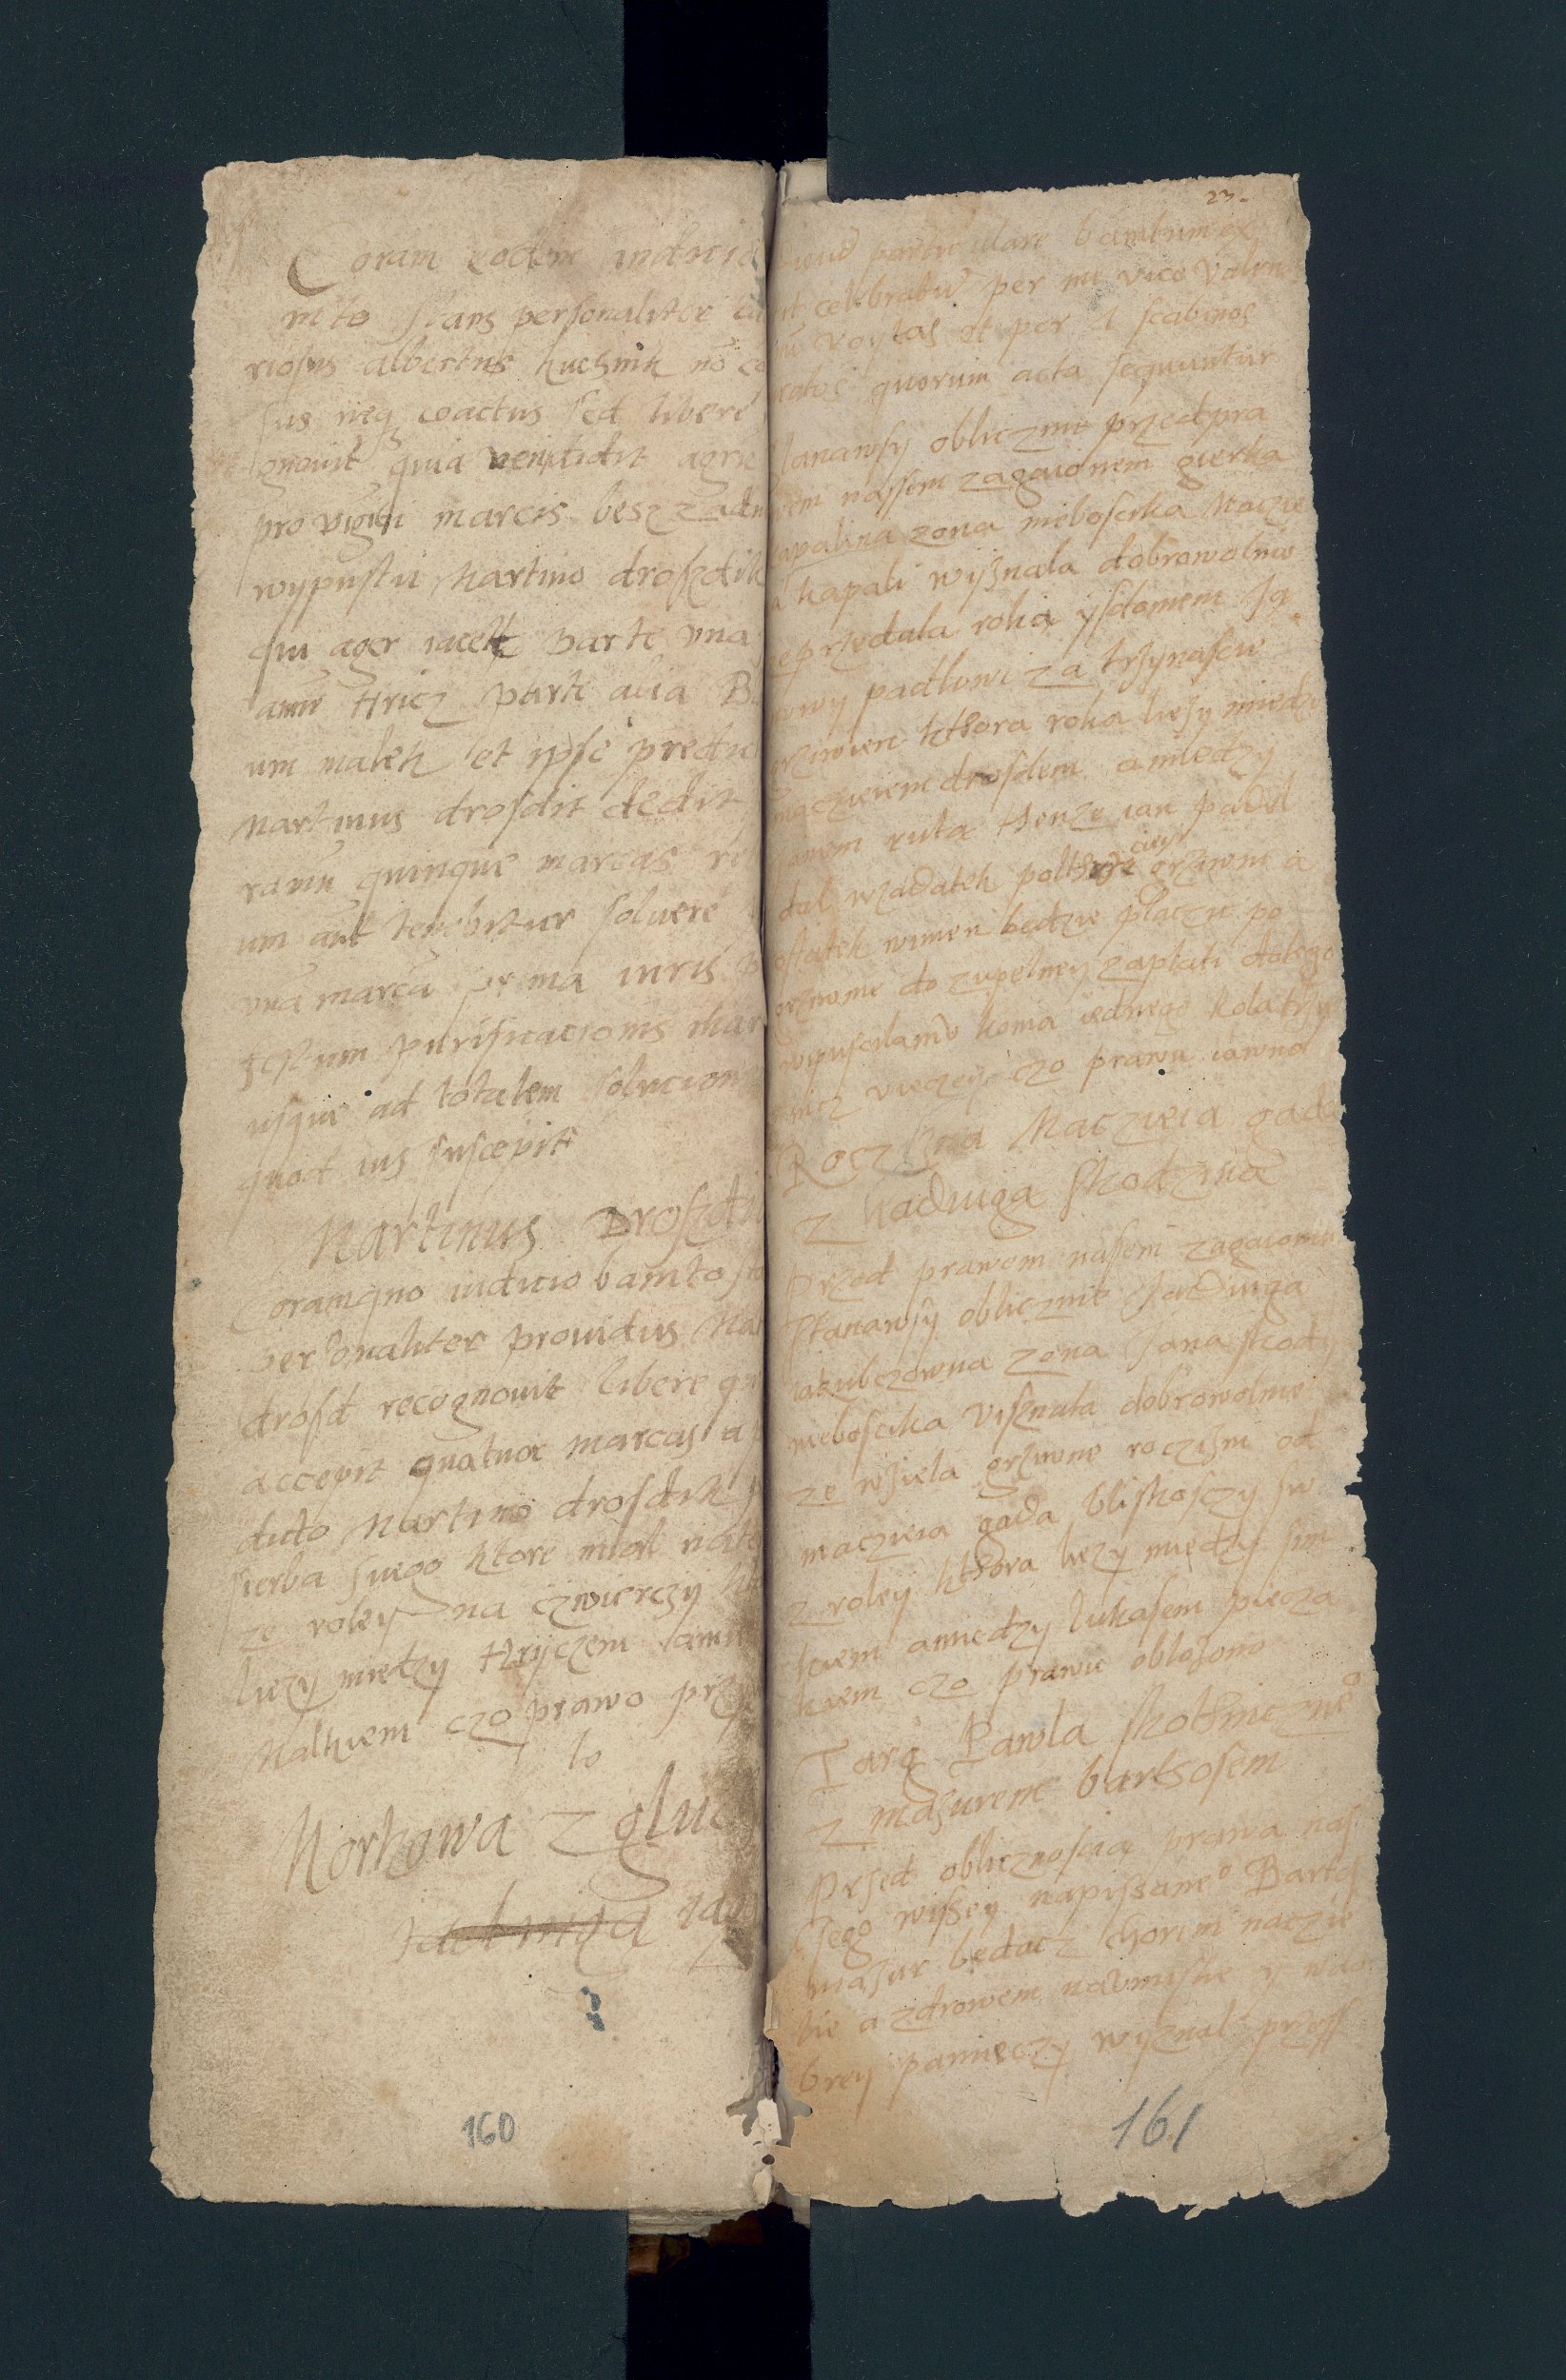 Coram eodem iudicio
nito stans personaliter
riosus albertus kuchnik no co
sus neq coactus sed libere
gnouit quia venididit agru
pro viginti marcis besz zadn
wypustu Martino droszdik
qui ager iacett parte una
parte alia B
um malek et ipse predic
Martinus drosdit dedit
quinque marcas
um aut tenebitur soluere
una marca iuris
festum purificacionis mar
usque ad totalem solucion
quod ius suscepit
Martinus Droszd
Coramqno iudicio banito
personaliter prouidus Mar
drosd recognouit libere qu
accepit quatuor marcas a
dicto Martino drosdik
sierba swego ktore mial
ze roley na czwierczy
liezy miedzy
Malkiem czo prawo przy
lo
Morkowa z gluc
160
23.
iudi particulare banitum ex
nt celebratu per me vice
voytas et per 4 scabinos
ratos quorum acta sequuntur
stanawsy oblicznie przed pra
wem nassem zagaionem gierka
kapalina zona nieboscika Maczie
a kapali wyznala dobrowolnie
ze przedala rolia ysdomem Ja
nowy padlowi za trzynascie
grziwien kthora rolia liezy miedzi
maczieiem drosdem a miedzy
janem ruta thenze ian padel
dal wzadatek polthrze ciey grziwni a
ostatek winien bedzie placzic po
grziwnie do zupelney zaplati
wipuscilamu konia iednego kola trzy
nicz wieczey czo prawu iawno
Roczizna Maczieia gada
z hadwiga skodzina
Przed prawem nassem zagaionim
Stanawsy oblicznie Jadwiga
iakubczowna zona Jana skody
nieboscika viznala dobrowolnie
ze wziela grziwne roczizni od
maczieia gada bliskosczy sw
z roley kthora liezy miedzy sim
kiem amiedzy lukasem pieoza
kiem czo prawu oblozono
Targ Pawla skothnicznego
z mazurem barthosem
Przed oblicznoscia prawa nas
sego wissey napissaneo Bartos
mazur bedacz chorim nacziele
lie a zdrowem naumisle y wdo
brey pamieczy wyznal przess
161